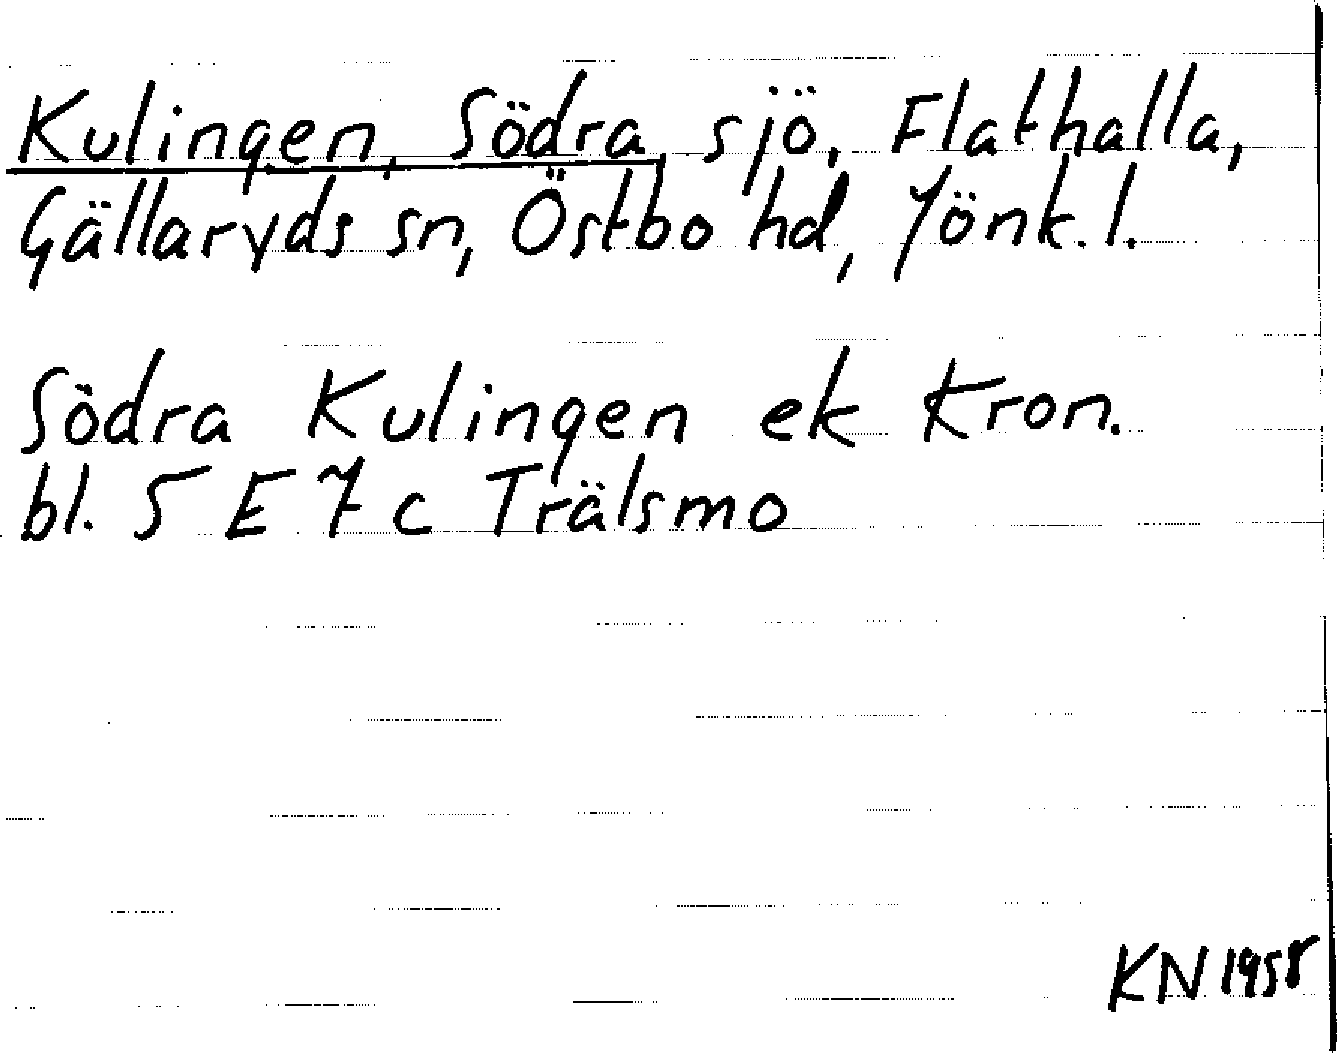 Kulingen, Södra, sjö, Flathalla,
Gällaryds sn, Östbo hd, Jönk. l.
Södra Kulingen ek Kron.
bl. 5 E 7 c Trälsmo
KN 1958